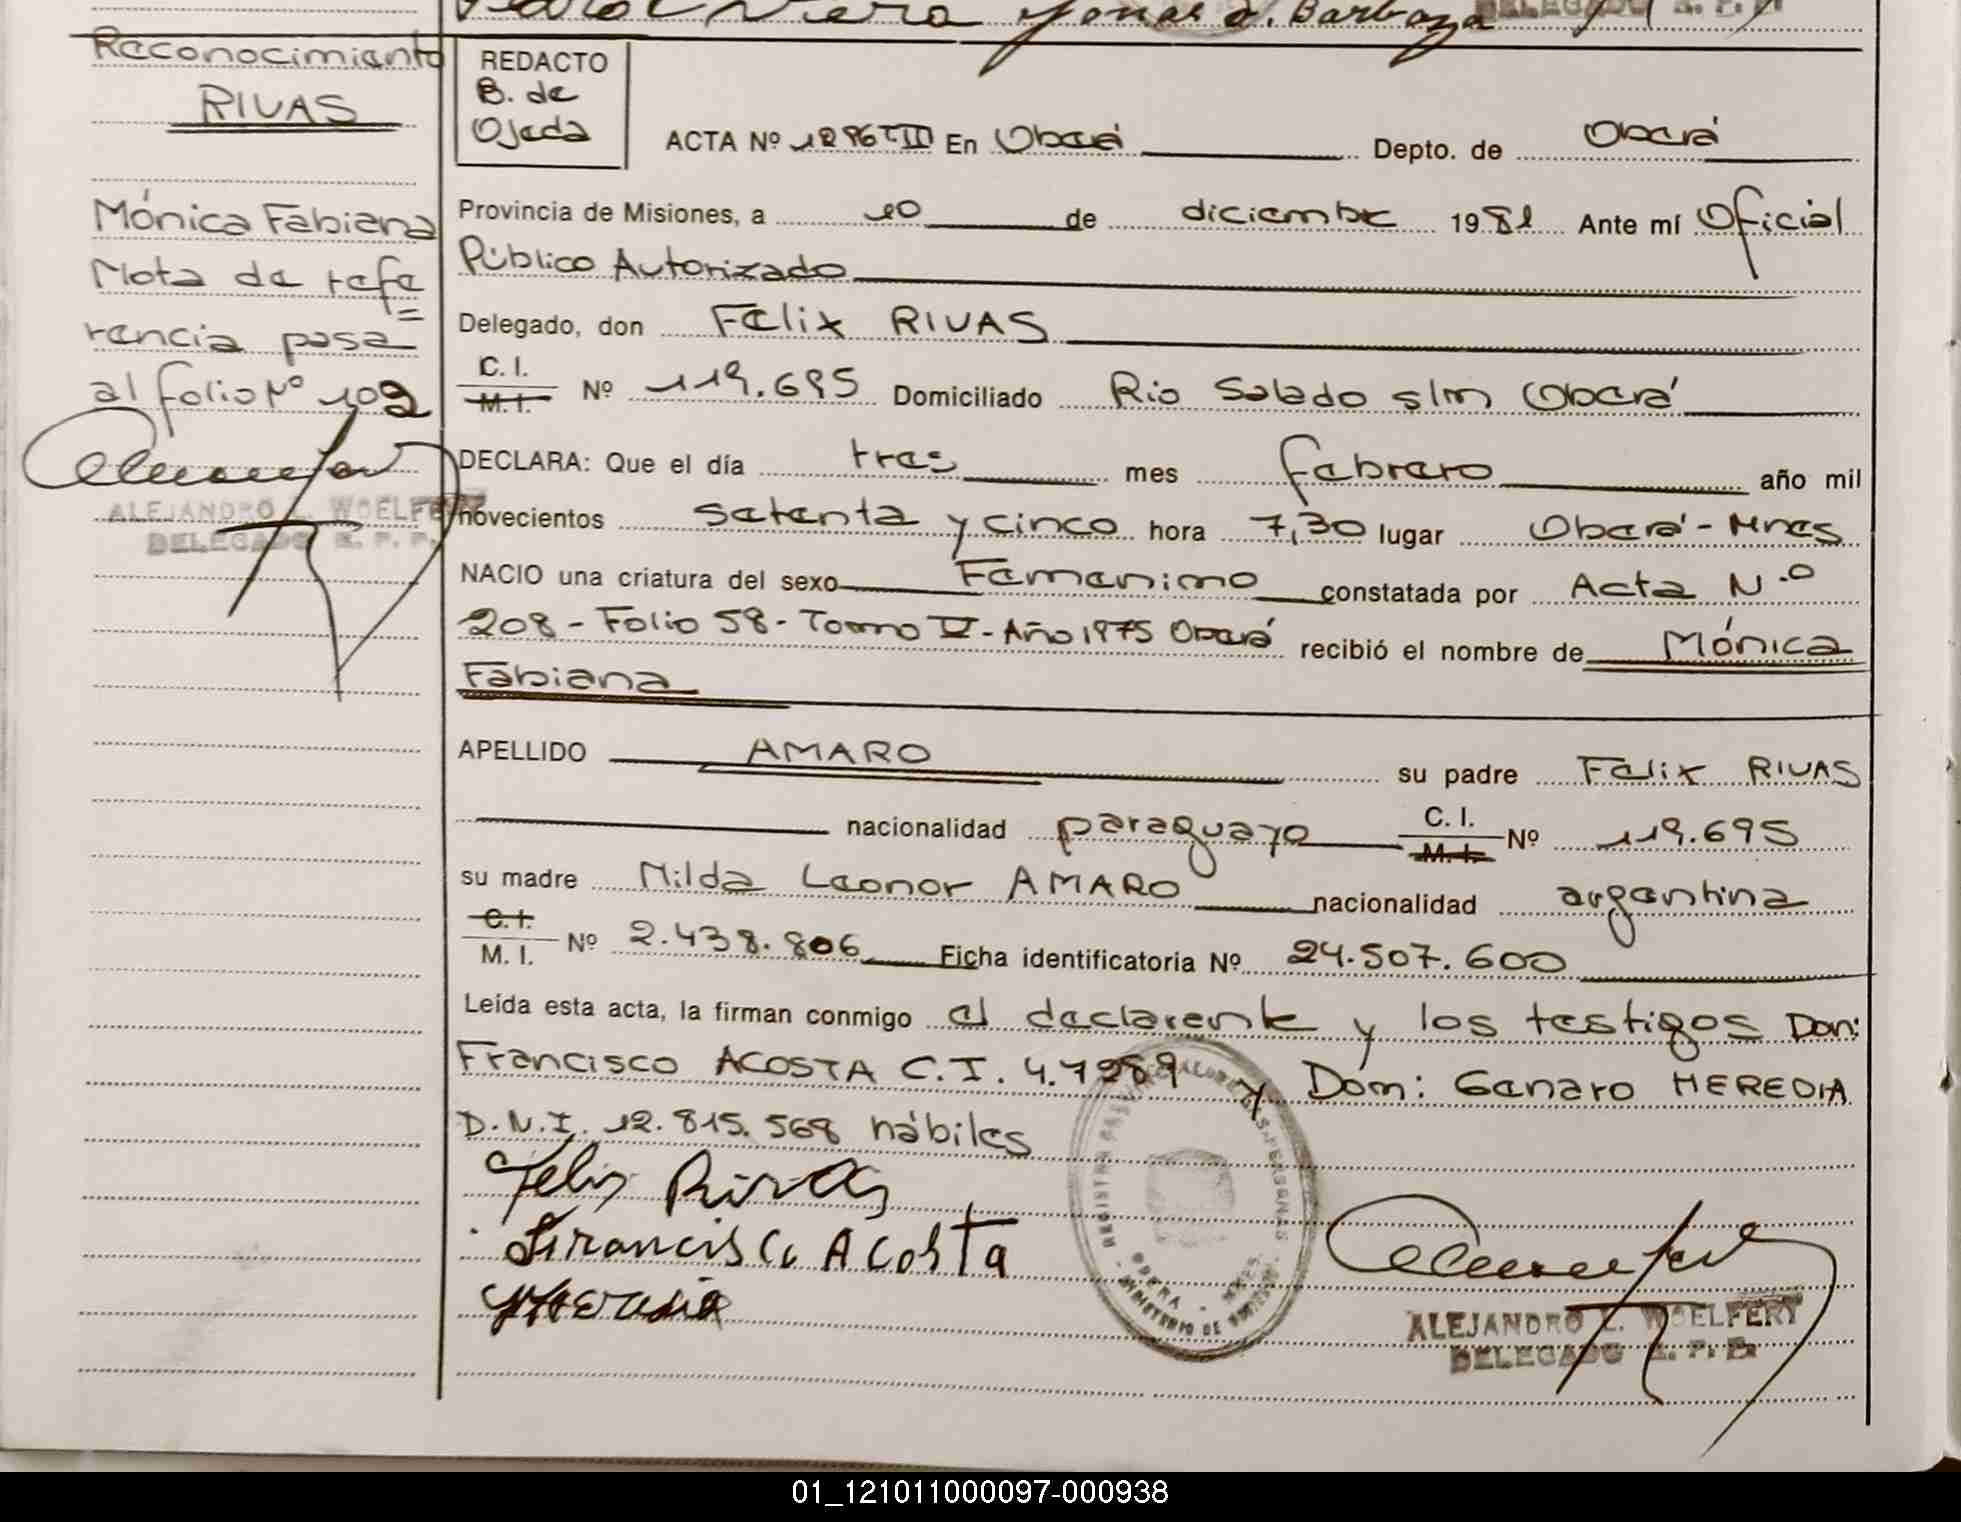 Reconocimiento
RIVAS
Mónica Fabiana
Nota de refe=
rencia pasa
al folio Nº 109
ALEJANDRO L. WOELFERT
DELEGADO R. P. P.
Pedro C. Viera Jonas d. Barboza
DELEGADO R. P. P.
REDACTO
B. de
Ojeda
ACTA Nº 1296 TIII En Oberá Depto. de Oberá
Provincia de Misiones, a 10 de diciembre 1981 Ante mí Oficial
Público Autorizado
Delegado, don Felix RIVAS
C. I. / M. I. Nº 119.695 Domiciliado Rio Salado s/m Oberá
DECLARA: Que el día tres mes febrero año mil
novecientos setenta y cinco hora 7,30 lugar Oberá - Mnes
NACIO una criatura del sexo Femenino constatada por Acta N.º
208 - Folio 58 - Tomo V - Año 1975 Oberá recibió el nombre de Mónica
Fabiana
APELLIDO AMARO su padre Felix RIVAS
nacionalidad paraguayo C. I. / M. I. Nº 119.695
su madre Nilda Leonor AMARO nacionalidad argentina
C. I. / M. I. Nº 2.438.806 Ficha identificatoria Nº 24.507.600
Leída esta acta, la firman conmigo el declarente y los testigos Don:
Francisco ACOSTA C.I. 4.7989 y Dom: Genaro HEREDIA
D.N.I. 12.815.568 hábiles
Felix Rivas
Francisco Acosta
Heredia
ALEJANDRO L. WOELFERT
DELEGADO R. P. P.
01_121011000097-000938